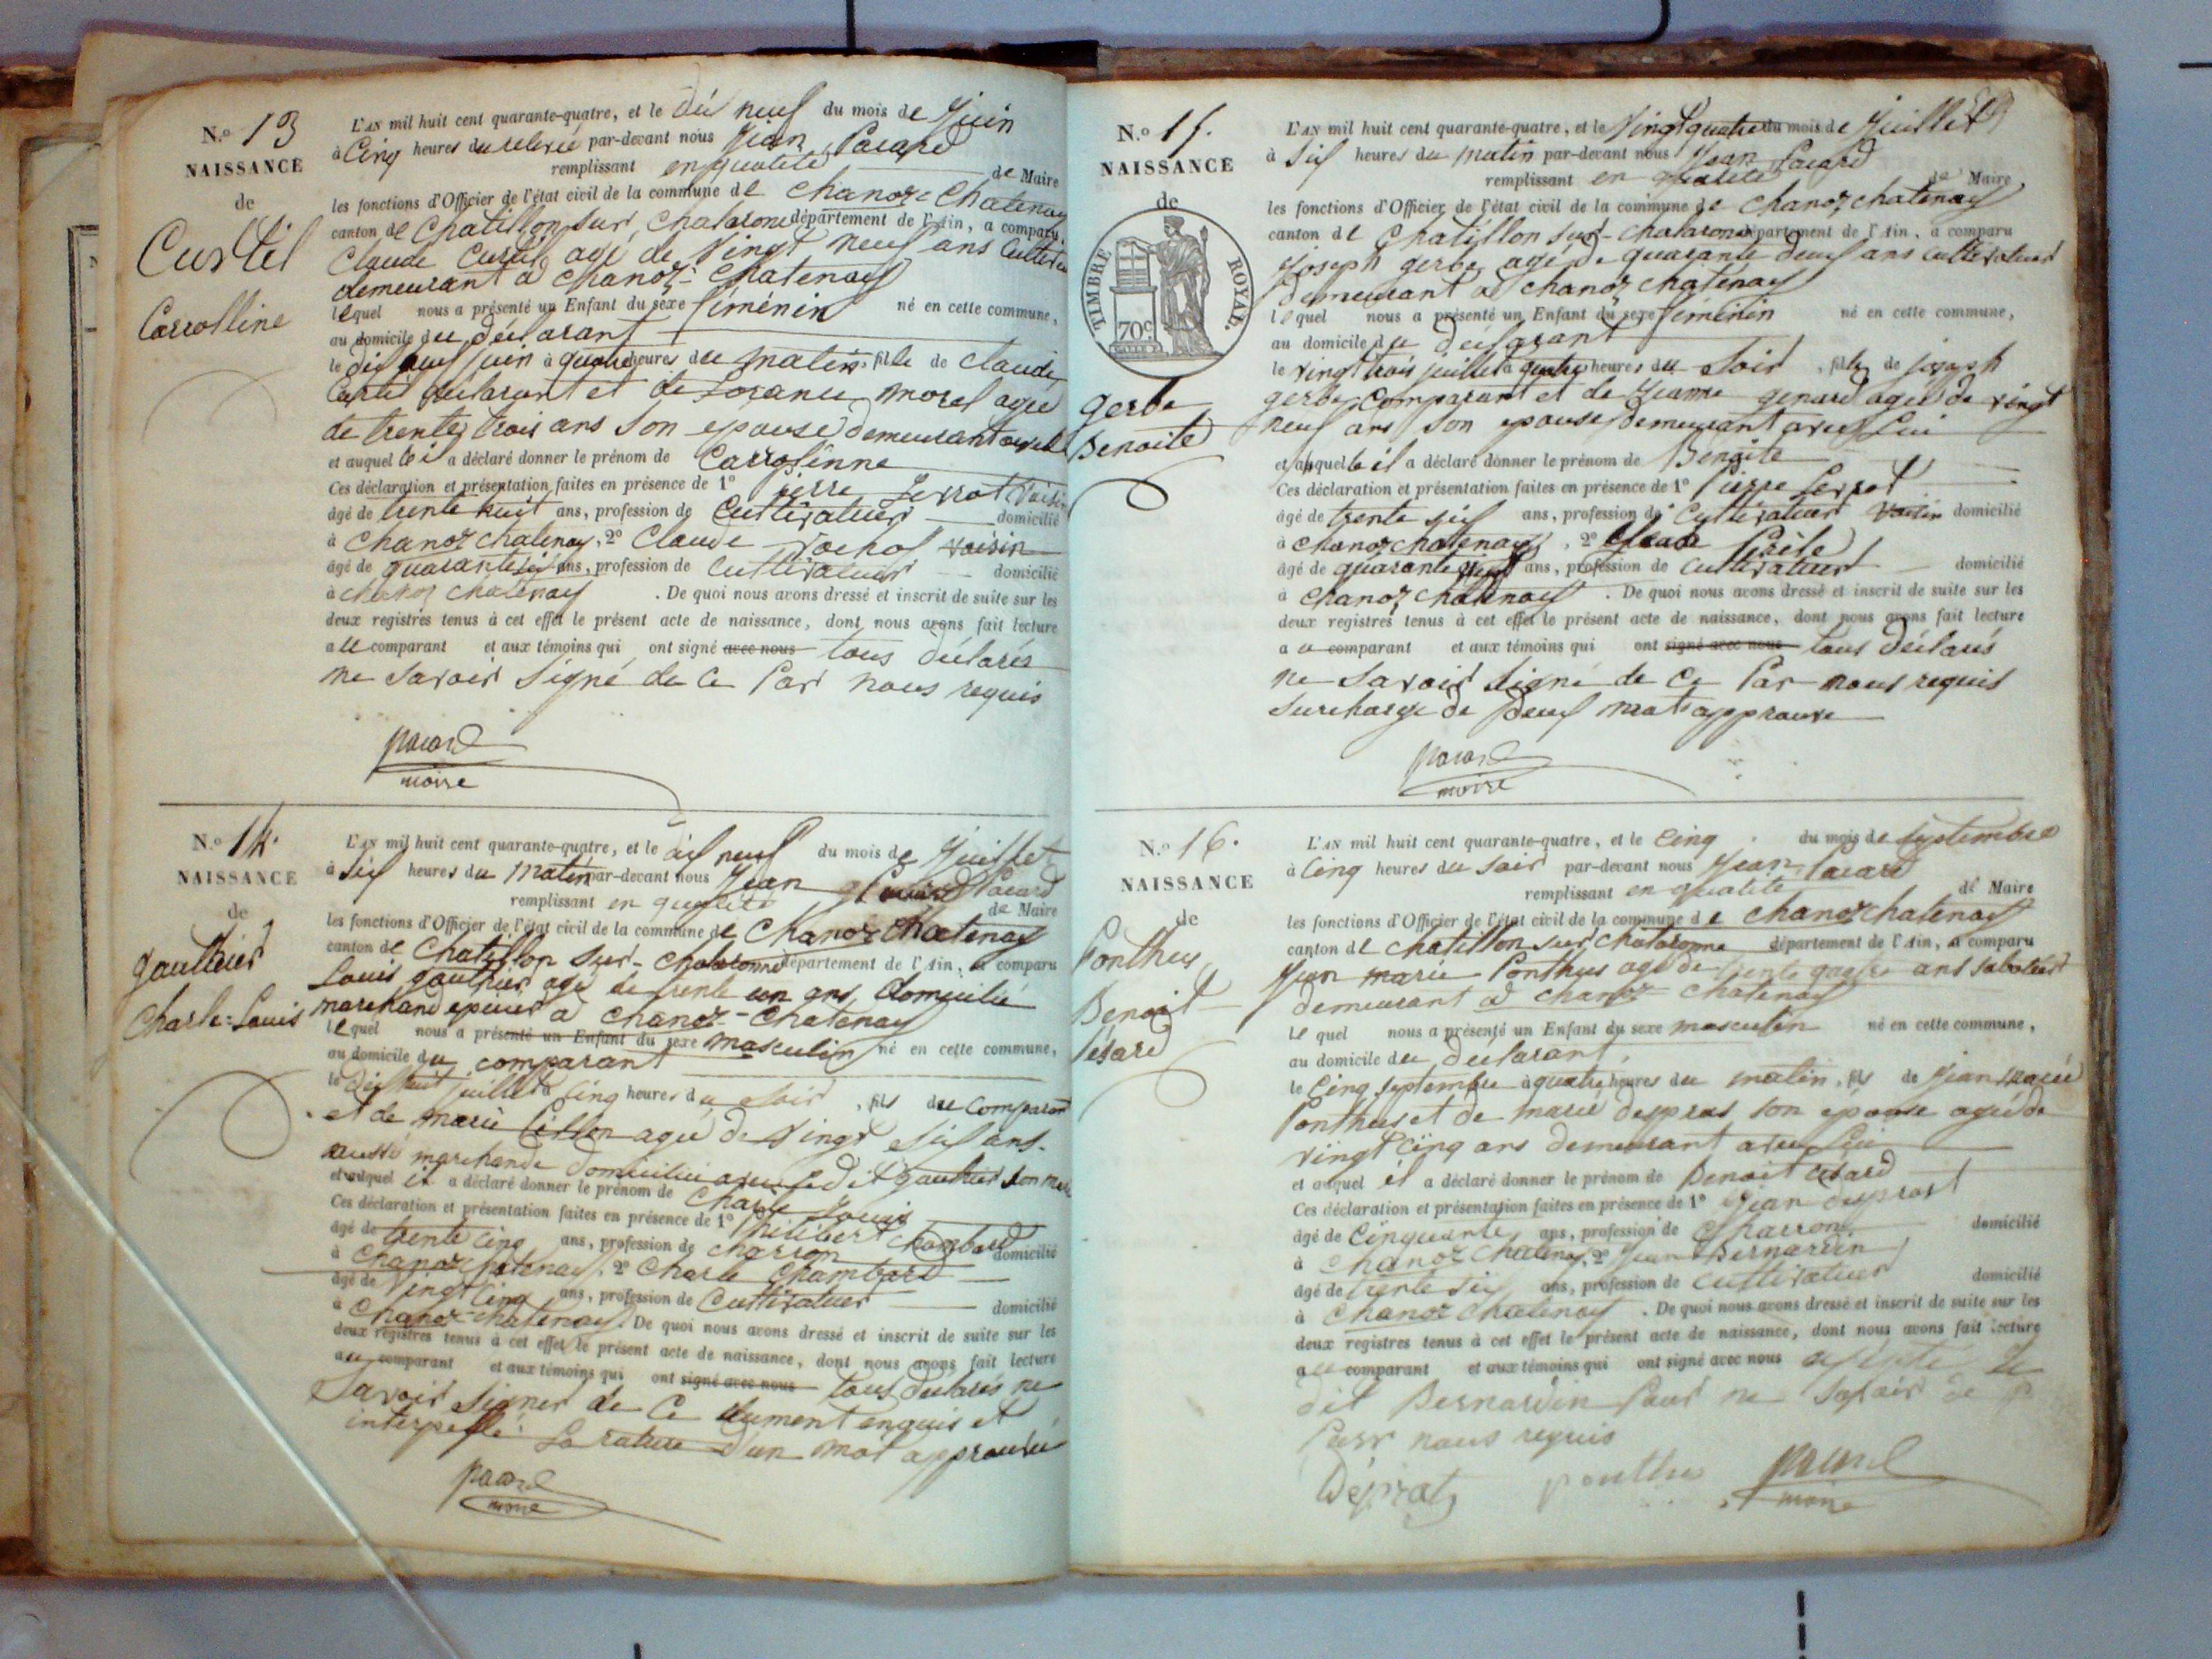 N.o 13
NAISSANCE
de
Curtil
Carrolline
L'AN mil huit cent quarante-quatre, et le dix neuf du mois de Juin
à Cinq heures du relevée par-devant nous Jean Pacard
remplissant en qualité de Maire
les fonctions d'Officier de l'état civil de la commune de Chanoz-Chatenay
canton de Chatillon sur Chalaronne département de l'Ain, a comparu
Claude Curtil agé de Vingt neuf ans Cultivateur
demeurant à Chanoz-Chatenay
lequel nous a présenté un Enfant du sexe féménin né en cette commune,
au domicile du déclarant
le dix neuf juin à quatre heures du matin, fille de Claude
Curtil déclarant et de morel agée
de trente trois ans son epouse demeurant
et auquel a déclaré donner le prénom de
Ces déclaration et présentation faites en présence de 1º pierre perrot Voisin
âgé de trente huit ans, profession de Cultivateur domicilié
à Chanoz chatenay, 2º Claude voisin
âgé de quarante six ans, profession de Cultivateur domicilié
à Chanoz Chatenay. De quoi nous avons dressé et inscrit de suite sur les
deux registres tenus à cet effet le présent acte de naissance, dont nous avons fait lecture
au comparant et aux témoins qui ont signé avec nous tous déclarés
ne savoir signé de ce Par nous requis
pacard
maire
N.o 14.
NAISSANCE
de
gauthier
Charle=Louis
L'AN mil huit cent quarante-quatre, et le dix neuf du mois de Juillet
à six heures du matin par-devant nous Jean Pacard
remplissant en qualité de Maire
les fonctions d'Officier de l'état civil de la commune de Chanoz Chatenay
canton de Chatillon sur-Chalaronne département de l'Ain, a comparu
Louis gauthier agé de trente un ans, domicilié
marchand epicier à Chanoz-Chatenay
lequel nous a présenté un Enfant du sexe masculin né en cette commune,
au domicile du comparant
le dix huit juillet à cinq heures du soir, fils du Comparant
et de marie agée de Vingt six ans.
aussi marchande domiciliée avec ledit gauthier son mari
et auquel il a déclaré donner le prénom de Charle Louis
Ces déclaration et présentation faites en présence de 1º philibert Chambard
âgé de trente cinq ans, profession de charron domicilié
à Chanoz Chatenay, 2º Charle Chambard
âgé de Vingt cinq ans, profession de Cultivateur domicilié
à Chanoz-Chatenay. De quoi nous avons dressé et inscrit de suite sur les
deux registres tenus à cet effet le présent acte de naissance, dont nous avons fait lecture
au comparant et aux témoins qui ont signé avec nous tous déclarés ne
savoir signer de ce dument enquis et
interpellé. La rature d'un mot approuvé
pacard
maire
N.o 15.
NAISSANCE
de
TIMBRE ROYAL.
70c.
gerbe
Benoite
L'AN mil huit cent quarante-quatre, et le Vingt quatre du mois de Juillet
à six heures du matin par-devant nous Jean Pacard
remplissant en qualité de Maire
les fonctions d'Officier de l'état civil de la commune de Chanoz chatenay
canton de Chatillon sur-Chalaronne département de l'Ain, a comparu
Joseph gerbe agé de quarante deux ans cultivateur
demeurant à Chanoz chatenay
lequel nous a présenté un Enfant du sexe féménin né en cette commune,
au domicile du déclarant
le vingt trois juillet à quatre heures du soir, fille de joseph
gerbe Comparant et de Jeanne genard agée de vingt
neuf ans son epouse demeurant avec Lui
et auquelle il a déclaré donner le prénom de Benoite
Ces déclaration et présentation faites en présence de 1º Pierre Perrot
âgé de trente six ans, profession de Cultivateur voisin domicilié
à Chanoz chatenay, 2º
âgé de quarante ans, profession de Cultivateur domicilié
à Chanoz Chatenay. De quoi nous avons dressé et inscrit de suite sur les
deux registres tenus à cet effet le présent acte de naissance, dont nous avons fait lecture
au comparant et aux témoins qui ont signé avec nous tous déclarés
ne savoir signé de ce Par nous requis
surcharge de deux mots approuvé
pacard
maire
N.o 16.
NAISSANCE
de
Ponthus,
Benoit
Césard
L'AN mil huit cent quarante-quatre, et le Cinq du mois de Septembre
à Cinq heures du soir par-devant nous Jean Pacard
remplissant en qualité de Maire
les fonctions d'Officier de l'état civil de la commune de Chanoz chatenay
canton de Chatillon sur Chalaronne département de l'Ain, a comparu
Jean marie Ponthus agé de trente quatre ans sabotier
demeurant à Chanoz-Chatenay
lequel nous a présenté un Enfant du sexe masculin né en cette commune,
au domicile du declarant,
le Cinq Septembre à quatre heures du matin, fils de Jean Marie
Ponthus et de marie despras son épouse agée de
vingt cinq ans demeurant avec Lui
et auquel il a déclaré donner le prénom de Benoit Césard
Ces déclaration et présentation faites en présence de 1º Jean
âgé de Cinquante ans, profession de Charron domicilié
à Chanoz Chatenay, 2º Jean Bernardin
âgé de trente six ans, profession de Cultivateur domicilié
à Chanoz Chatenay. De quoi nous avons dressé et inscrit de suite sur les
deux registres tenus à cet effet le présent acte de naissance, dont nous avons fait lecture
au comparant et aux témoins qui ont signé avec nous le
dit Bernardin Pour ne savoir de ce
Par nous requis
ponthus pacard
maire